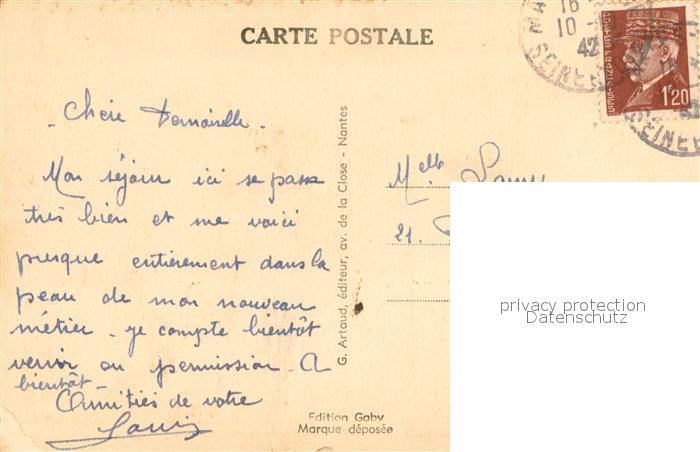 CARTE POSTALE
POSTES FRANÇAISES
1F20
MA
16
10
42
SEINE
Chère Demoiselle
Mon séjour ici se passe
très bien et me voici
presque entièrement dans la
peau de mon nouveau
métier - je compte bientôt
venir en permission - A
bientôt -
Amitiés de votre
Louis
G. Artaud, éditeur, av. de la Close - Nantes
Melle
21.
Edition Gaby
Marque déposée
privacy protection
Datenschutz